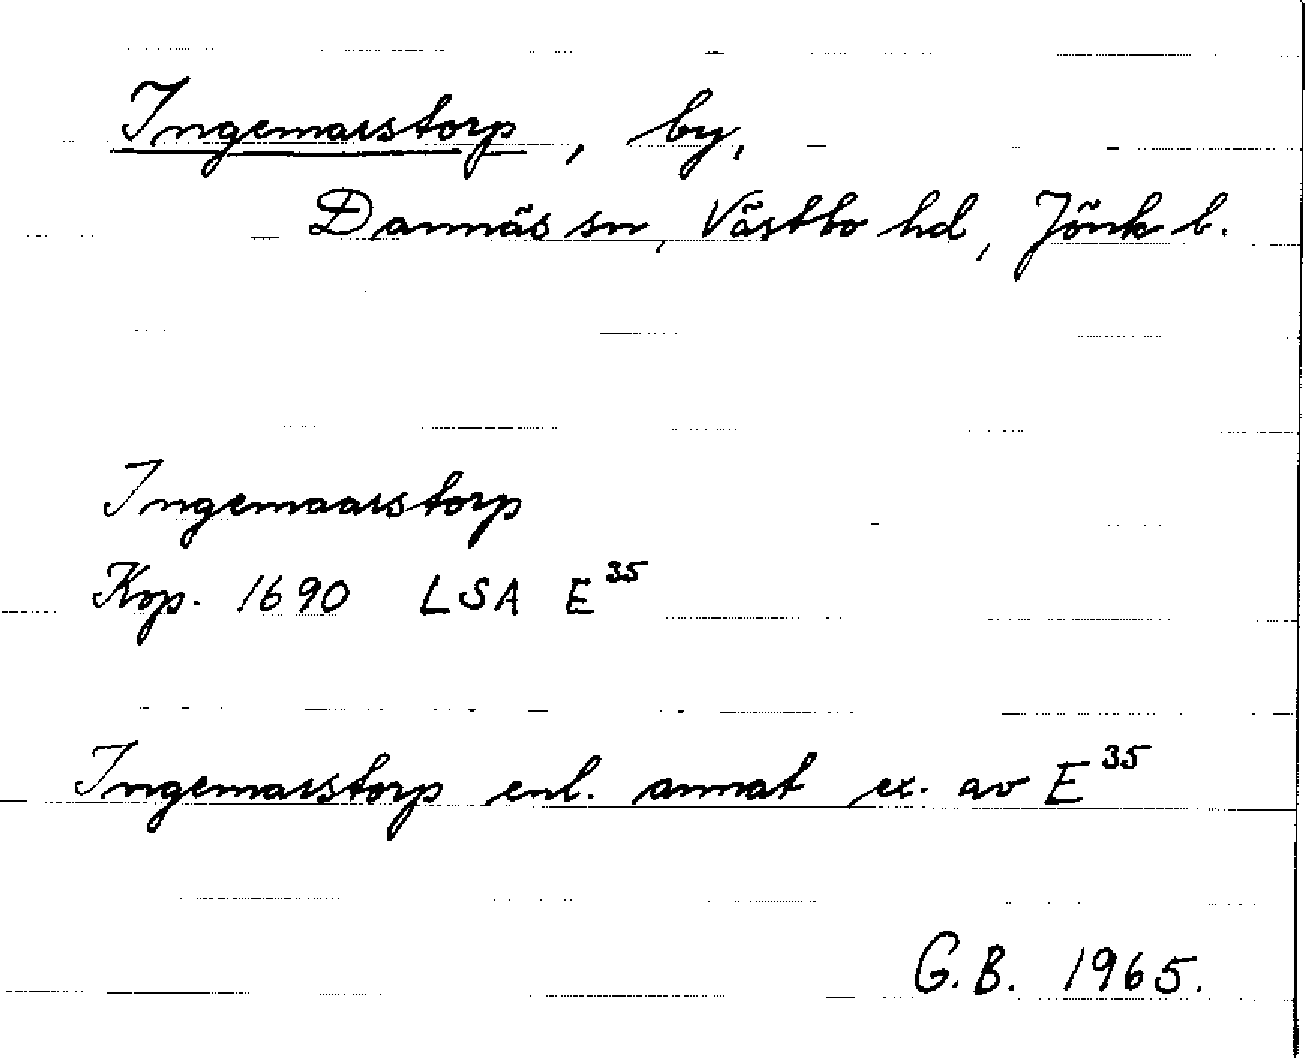 Ingemarstorp, by,
Dannäs sn, Västbo hd, Jönk l.
Ingemaarstorp
Kop. 1690 LSA E³⁵
Ingemarstorp enl. annat ex. av E³⁵
G.B. 1965.